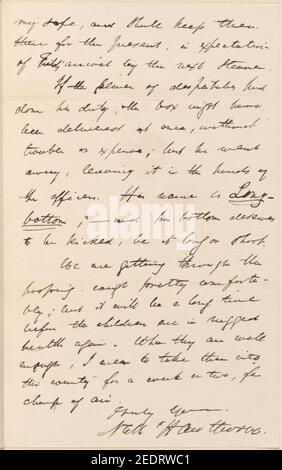 my safe, and shall keep them
there for the present, in expectation
of Fitz' arrival by the next steamer.
If the bearer of despatches had
done his duty, the box might have
been delivered at once, without
trouble or expense; but he went
away, leaving it in the hands of
the officers. His name is Long-
bottom; — and his bottom deserves
to be kicked, be it long or short.
We are getting through the
hooping-cough pretty comforta-
bly; but it will be a long time
before the children are in rugged
health again. When they are well
enough, I mean to take them into
the country for a week or two, for
change of air.
Truly Yours
Nath Hawthorne.
alamy
Image ID: 2EDRWC1
www.alamy.com